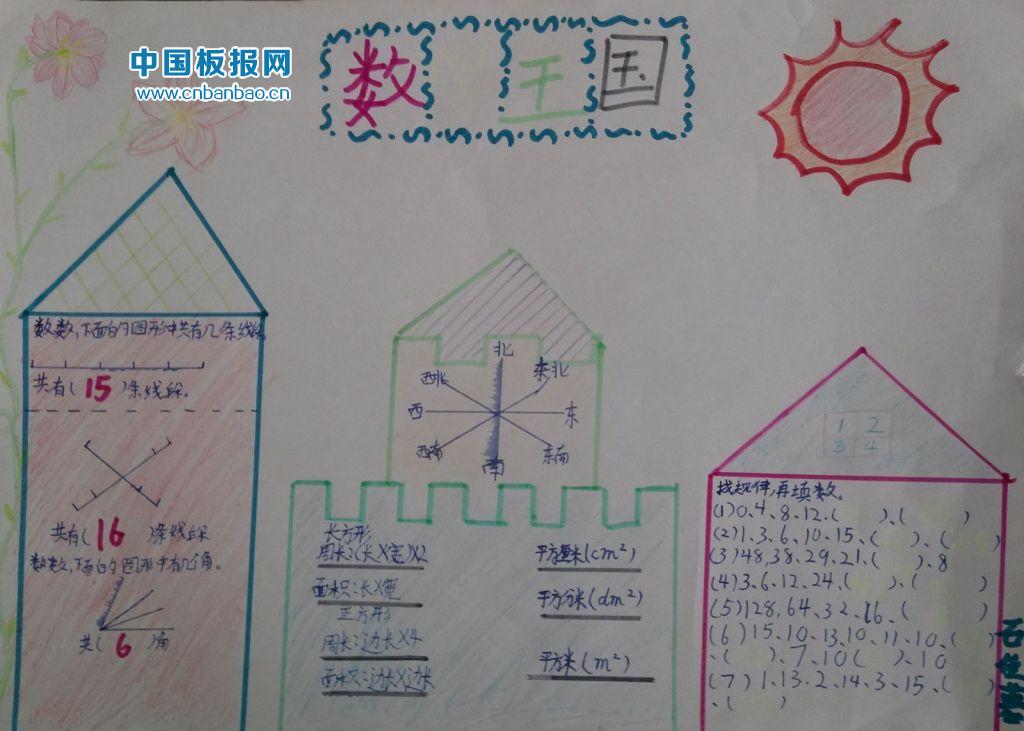 中国板报网
www.cnbanbao.cn
数 王国
数数,下面的图形中共有几条线段
共有(15)条线段。
共有(16)条线段
数数,下面的图形中有几个角。
共(6)角
北
西北
东北
西
东
西南
东南
南
长方形
周长:(长×宽)×2
面积:长×宽
正方形
周长:边长×4
面积:边长×边长
平方厘米(cm²)
平方分米(dm²)
平方米(m²)
1 2
3 4
找规律,再填数。
(1)0、4、8、12、( )、( )
(2)1、3、6、10、15、( )、( )
(3)48,38、29、21、( )、8
(4)3、6、12、24、( )、( )
(5)128,64、32、16、( )
(6)15、10、13、10、11、10、( )
、( )、7、10( )、10
(7)1、13、2、14、3、15、( )
、( )